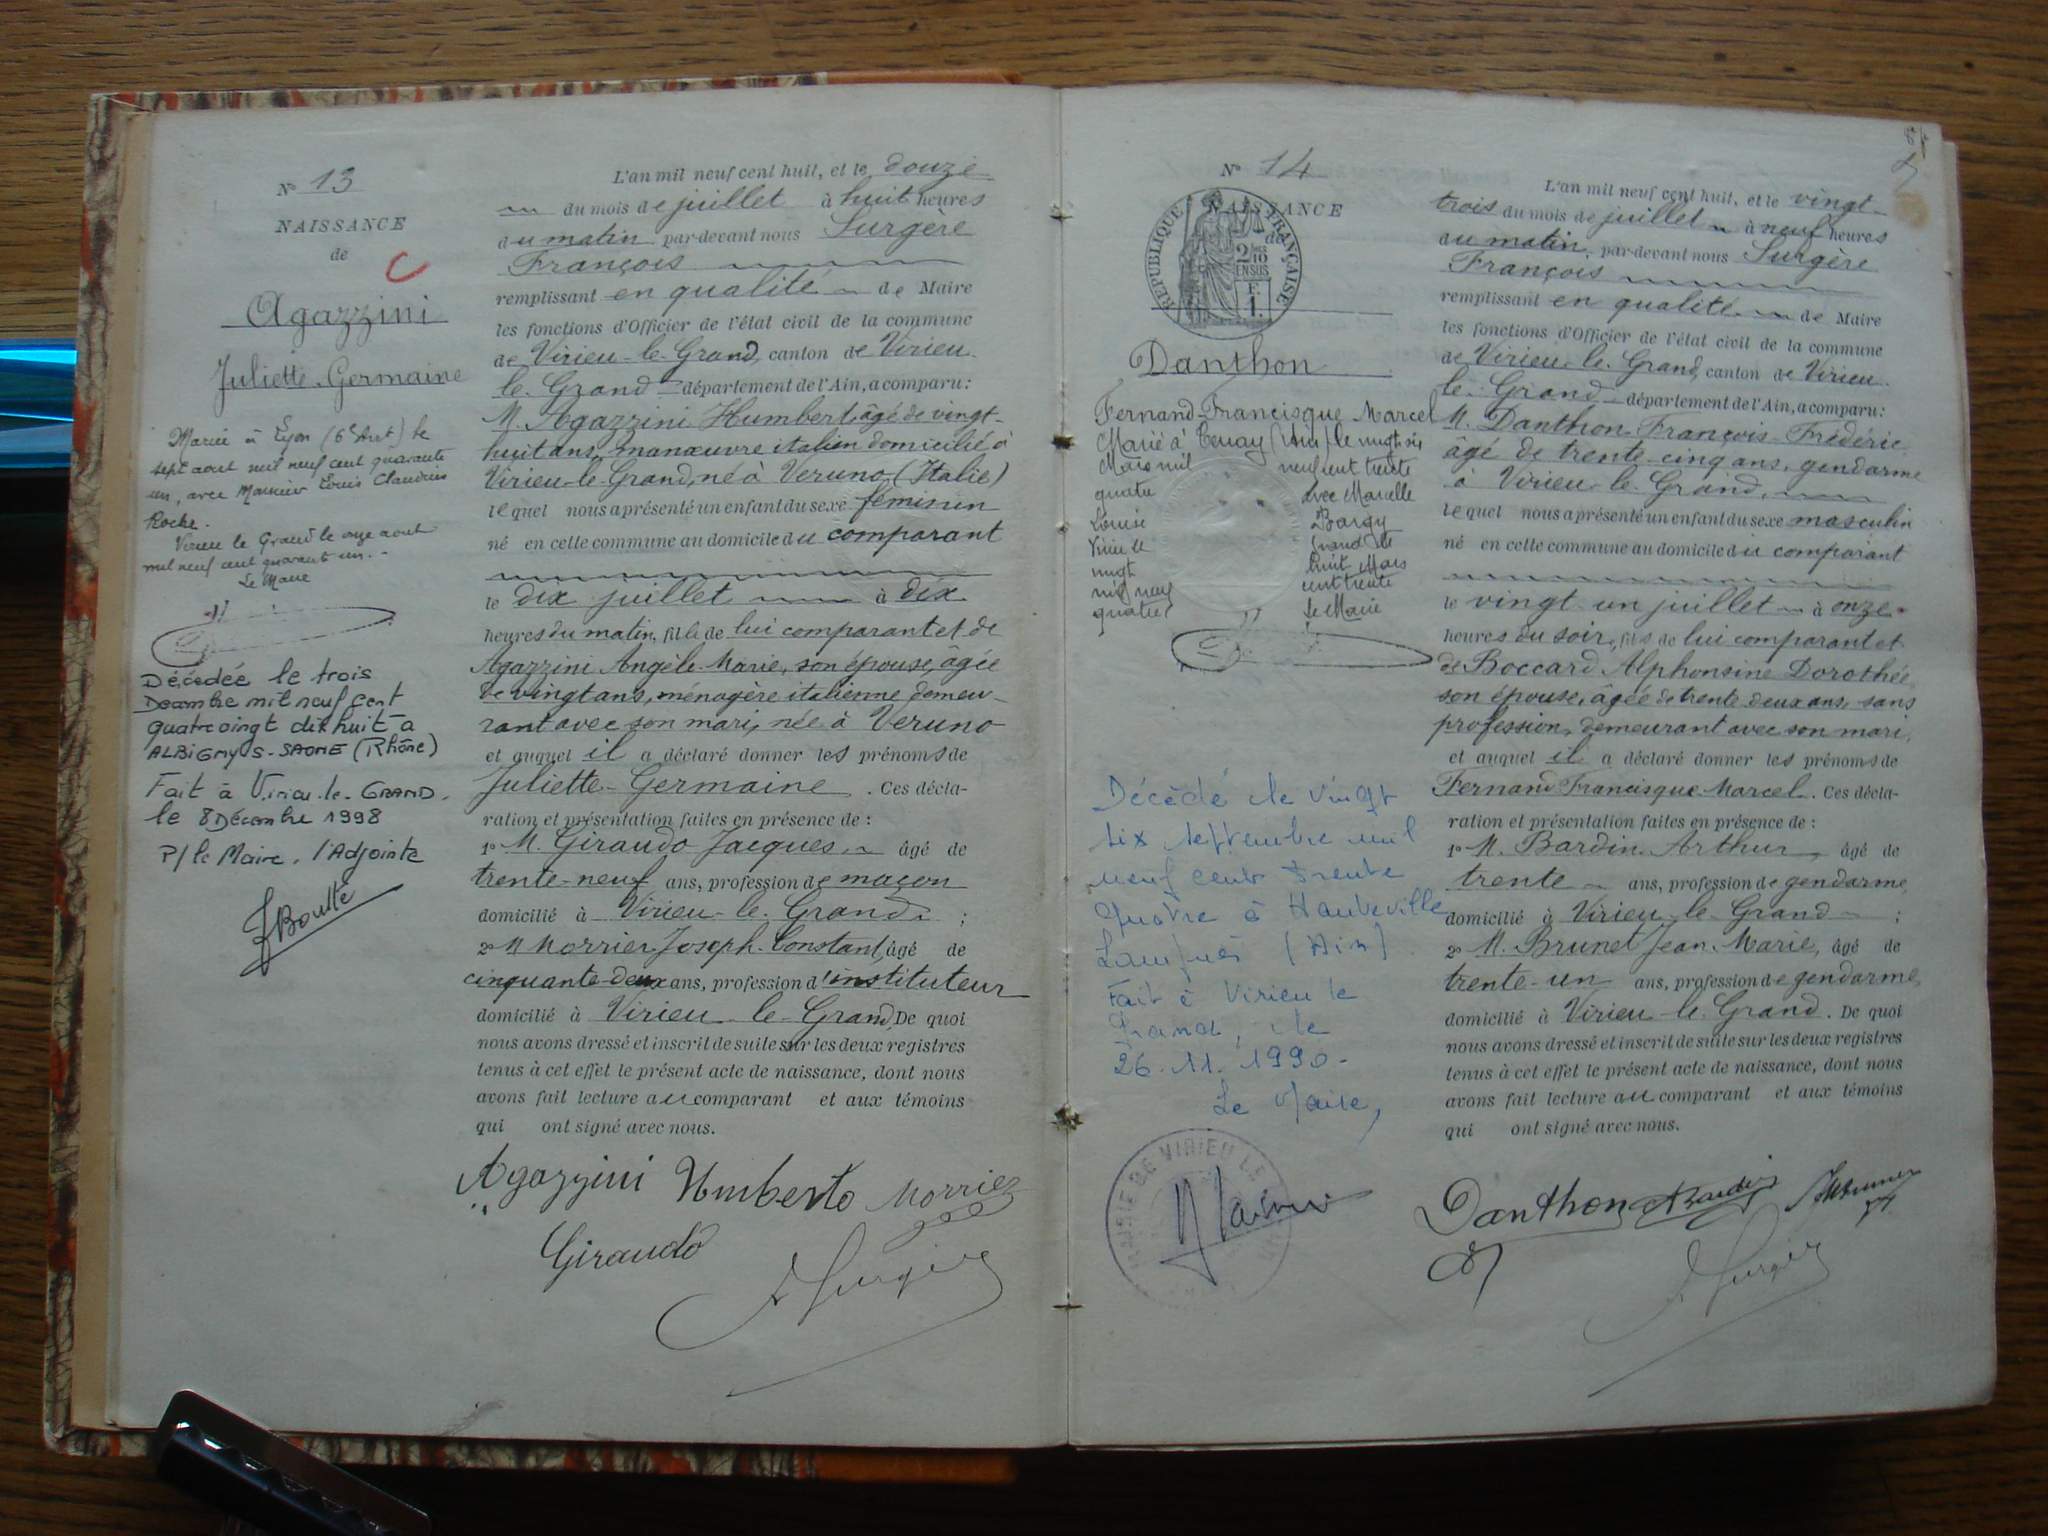 N° 13
NAISSANCE
de
C
Agazzini
Juliette-Germaine
Mariée à Lyon (6e Arrt) le
sept aout mil neuf cent quarante
un, avec Louis Claudius
Roche.
Virieu le Grand le onze aout
mil neuf cent quarante un.-
Le Maire
Décédée le trois
Décembre mil neuf cent
quatre vingt dix huit à
ALBIGNY S-SAONE (Rhône)
Fait à Virieu-le-GRAND.
le 8 Décembre 1998
P/le Maire, l'Adjointe
L'an mil neuf cent huit, et le douze
du mois de juillet à huit heures
du matin par-devant nous Surgère
François
remplissant en qualité de Maire
les fonctions d'Officier de l'état civil de la commune
de Virieu-le-Grand, canton de Virieu-
le-Grand département de l'Ain, a comparu:
M. Agazzini Humbert, âgé de vingt-
huit ans, manœuvre italien domicilié à
Virieu-le-Grand, né à Veruno (Italie)
lequel nous a présenté un enfant du sexe féminin
né en cette commune au domicile du comparant
le dix juillet à dix
heures du matin, fille de lui comparant et de
Agazzini Angèle-Marie, son épouse, âgée
de vingt ans, ménagère italienne, demeu-
rant avec son mari, née à Veruno
et auquel il a déclaré donner les prénoms de
Juliette-Germaine. Ces décla-
ration et présentation faites en présence de :
1° M. Giraudo Jacques âgé de
trente-neuf ans, profession de maçon
domicilié à Virieu-le-Grand ;
2° M Morrier Joseph-Constant, âgé de
cinquante-deux ans, profession d'instituteur
domicilié à Virieu-le-Grand. De quoi
nous avons dressé et inscrit de suite sur les deux registres
tenus à cet effet le présent acte de naissance, dont nous
avons fait lecture au comparant et aux témoins
qui ont signé avec nous.
Agazzini Umberto Morrier
Giraudo
Surgère
N° 14
NAISSANCE
de
REPUBLIQUE FRANÇAISE
2/10 EN SUS
F. 1
Danthon
Fernand-Francisque-Marcel
Marié à Tenay (Ain) le vingt six
Mars mil neuf cent trente
quatre avec Marcelle
Louise Bargy
Virieu le Grand le
vingt huit Mars
mil neuf cent trente
quatre Le Maire
Décédé le vingt
six septembre mil
neuf cent trente
quatre à Hauteville
Lompnès (Ain)
Fait à Virieu le
Grand, le
26.11.1990-
Le Maire,
MAIRIE DE VIRIEU LE
L'an mil neuf cent huit, et le vingt-
trois du mois de juillet à neuf heures
du matin, par-devant nous Surgère
François
remplissant en qualité de Maire
les fonctions d'Officier de l'état civil de la commune
de Virieu-le-Grand, canton de Virieu-
le-Grand département de l'Ain, a comparu:
M. Danthon François-Frédéric
âgé de trente-cinq ans, gendarme
à Virieu-le-Grand,
lequel nous a présenté un enfant du sexe masculin
né en cette commune au domicile du comparant
le vingt-un juillet à onze
heures du soir, fils de lui comparant et
de Boccard Alphonsine Dorothée
son épouse, âgée de trente-deux ans, sans
profession, demeurant avec son mari,
et auquel il a déclaré donner les prénoms de
Fernand Francisque-Marcel. Ces décla-
ration et présentation faites en présence de :
1° M. Bardin Arthur, âgé de
trente ans, profession de gendarme,
domicilié à Virieu-le-Grand ;
2° M. Brunet Jean-Marie, âgé de
trente-un ans, profession de gendarme,
domicilié à Virieu-le-Grand. De quoi
nous avons dressé et inscrit de suite sur les deux registres
tenus à cet effet le présent acte de naissance, dont nous
avons fait lecture au comparant et aux témoins
qui ont signé avec nous.
Danthon Bardin
Surgère